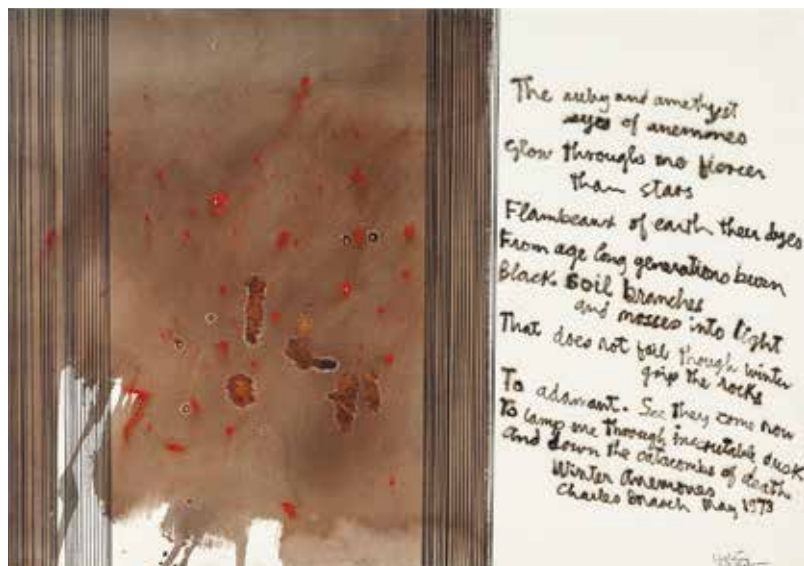 The ruby and amethyst
eyes of anemones
Glow through me fiercer
than stars
Flambeaux of earth their dyes
From age long generations burn
Black soil branches
and mosses into light
That does not fail though winter
grip the rocks
To adamant. See they come now
To lamp me through inscrutable dusk
And down the catacombs of death.
Winter Anemones
Charles Brasch May 1973